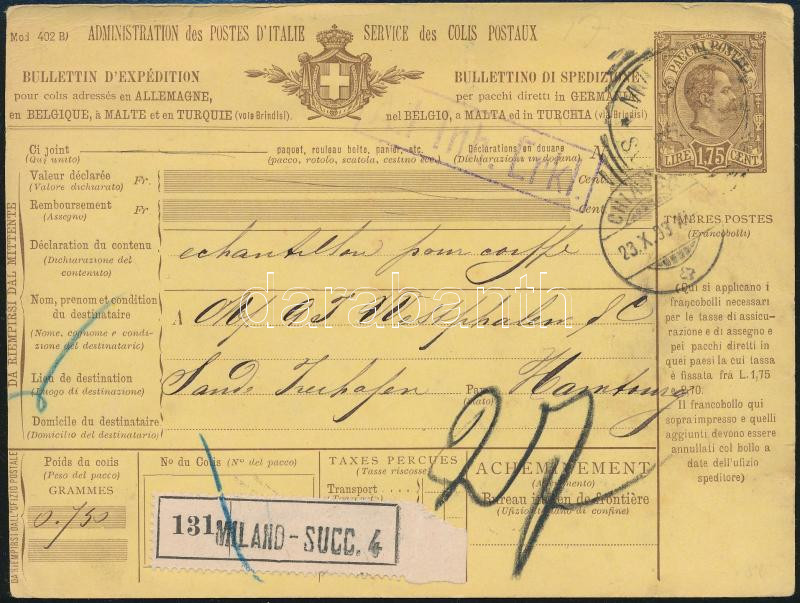 Mod 402 B) ADMINISTRATION des POSTES D'ITALIE SERVICE des COLIS POSTAUX
BULLETTIN D'EXPÉDITION
pour colis adressés en ALLEMAGNE,
en BELGIQUE, à MALTE et en TURQUIE (voie Brindisi).
BULLETTINO DI SPEDIZIONE
per pacchi diretti in GERMANIA
nel BELGIO, a MALTA ed in TURCHIA (via Brindisi).
PACCHI POSTALI
LIRE 1,75 CENT
Ci joint
(Qui unito)
paquet, rouleau boite, panier, etc.
(pacco, rotolo, scatola, cestino ecc.)
Déclarations en douane
(Dichiarazioni in dogana)
Valeur déclarée Fr.
(Valore dichiarato)
Cent.
Remboursement Fr.
(Assegno)
cent
CHIASSO
23.X.93
TIMBRES POSTES
(Francobolli)
Déclaration du contenu
(Dichiarazione del contenuto)
echantillon pour coiffe
Nom, prenom et condition du destinataire
(Nome, cognome e condizione del destinatario)
A
Westphalen & C
Lieu de destination
(Luogo di destinazione)
Sande Freihafen
Pays
(Stato)
Hambourg
Domicile du destinataire
(Domicilio del destinatario)
(Qui si applicano i
francobolli necessari
per le tasse di assicurazione
e di assegno e
pei pacchi diretti in
quei paesi la cui tassa
è fissata fra L. 1,75
e 2.70.
Il francobollo qui
sopra impresso e quelli
aggiunti devono essere
annullati col bollo a
date dell'ufizio
speditore)
DA RIEMPIRSI DAL MITTENTE
DA RIEMPIRSI DALL'UFIZIO POSTALE
27
Poids du colis
(Peso del pacco)
GRAMMES
0.750
No du Colis (N° del pacco)
TAXES PERÇUES
(Tasse riscosse)
Transport
ACHEMINEMENT
(Avviamento)
Bureau italien de frontière
(Ufizio italiano di confine)
131 MILANO - SUCC. 4
darabanth